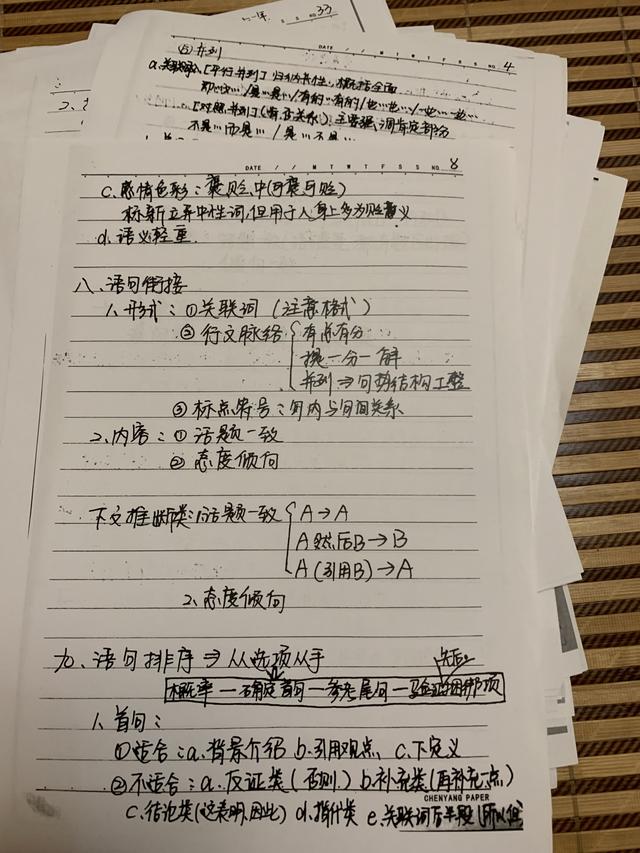 NO 33
(5) 并列
DATE / / M T W T F S S NO. 4
不是…而是… / 是…不是…
DATE / / M T W T F S S NO. 8
C.感情色彩：褒贬中(可褒可贬)
标新立异中性词,但用于人身上多为贬意义
d.语义轻重.
八、语句衔接
1.形式：①关联词（注意格式）
②行文脉络 有总有分
提一分一解
并列⇒句势结构工整
③标点符号：句内与句间关系
2.内容：①话题一致
②态度倾向
下文推断类:1.话题一致 A→A
A然后B→B
A(引用B)→A
2.态度倾向
九、语句排序⇒从选项从手
概率一确定首句一参考尾句一验证
1.首句：
①适合：a.背景介绍 b.引用观点、c.下定义
②不适合：a.反证类(否则) b补充类(再补充一点)
CHENYANG PAPER
C.结论类(这表明、因此) d.指代类 e.关联词后半段(所以、但